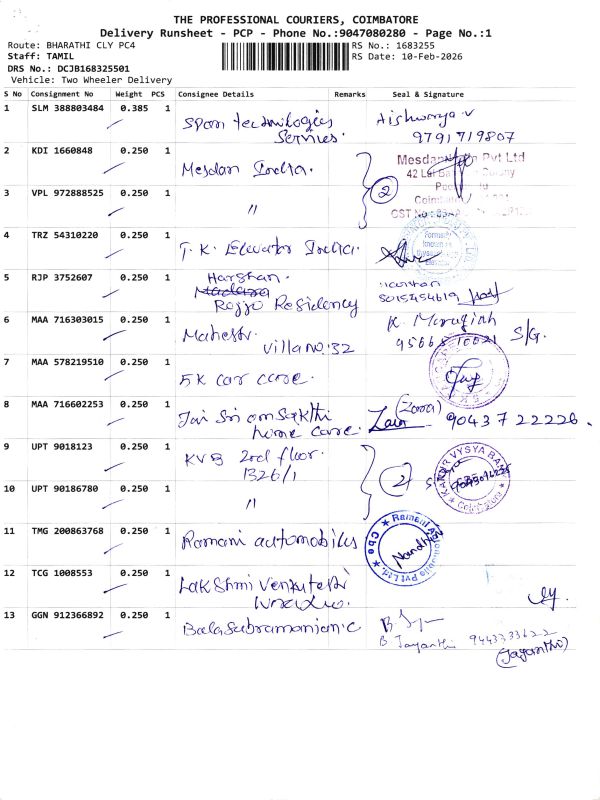 THE PROFESSIONAL COURIERS, COIMBATORE
Delivery Runsheet - PCP - Phone No.:9047080280 - Page No.:1
Route: BHARATHI CLY PC4
RS No.: 1683255
Staff: TAMIL
RS Date: 10-Feb-2026
DRS No.: DCJB168325501
Vehicle: Two Wheeler Delivery
S No Consignment No Weight PCS Consignee Details Remarks Seal & Signature
1 SLM 388803484 0.385 1 Span technilogies Aishwarya v
Services. 9791719807
2 KDI 1660848 0.250 1 Mesdan India. Mesdan Pvt Ltd
42
3 VPL 972888525 0.250 1 〃 2
Coimb
CST No
4 TRZ 54310220 0.250 1 T. K. Elevator India.
Formerly
known as
5 RJP 3752607 0.250 1 Harshan.
Rojjo Residency
6 MAA 716303015 0.250 1 Mahesh. K. Marugiah
villa no: 32 S/G.
7 MAA 578219510 0.250 1 5K car care.
8 MAA 716602253 0.250 1 Jai Sri om Sakthi (Zara)
home care. 90437 22226.
9 UPT 9018123 0.250 1 KVB 2nd floor.
1326/1 2
KARUR VYSYA BANK
Coimbatore
10 UPT 90186780 0.250 1 〃
11 TMG 200863768 0.250 1 Ramani automobiles
Ramani Automobile Pvt Ltd. Cbe
Nandhu
12 TCG 1008553 0.250 1 Lakshmi Venkatesh
13 GGN 912366892 0.250 1 Balasubramaniam.C
B Jayanthi 9443333622
(Jayanthi)